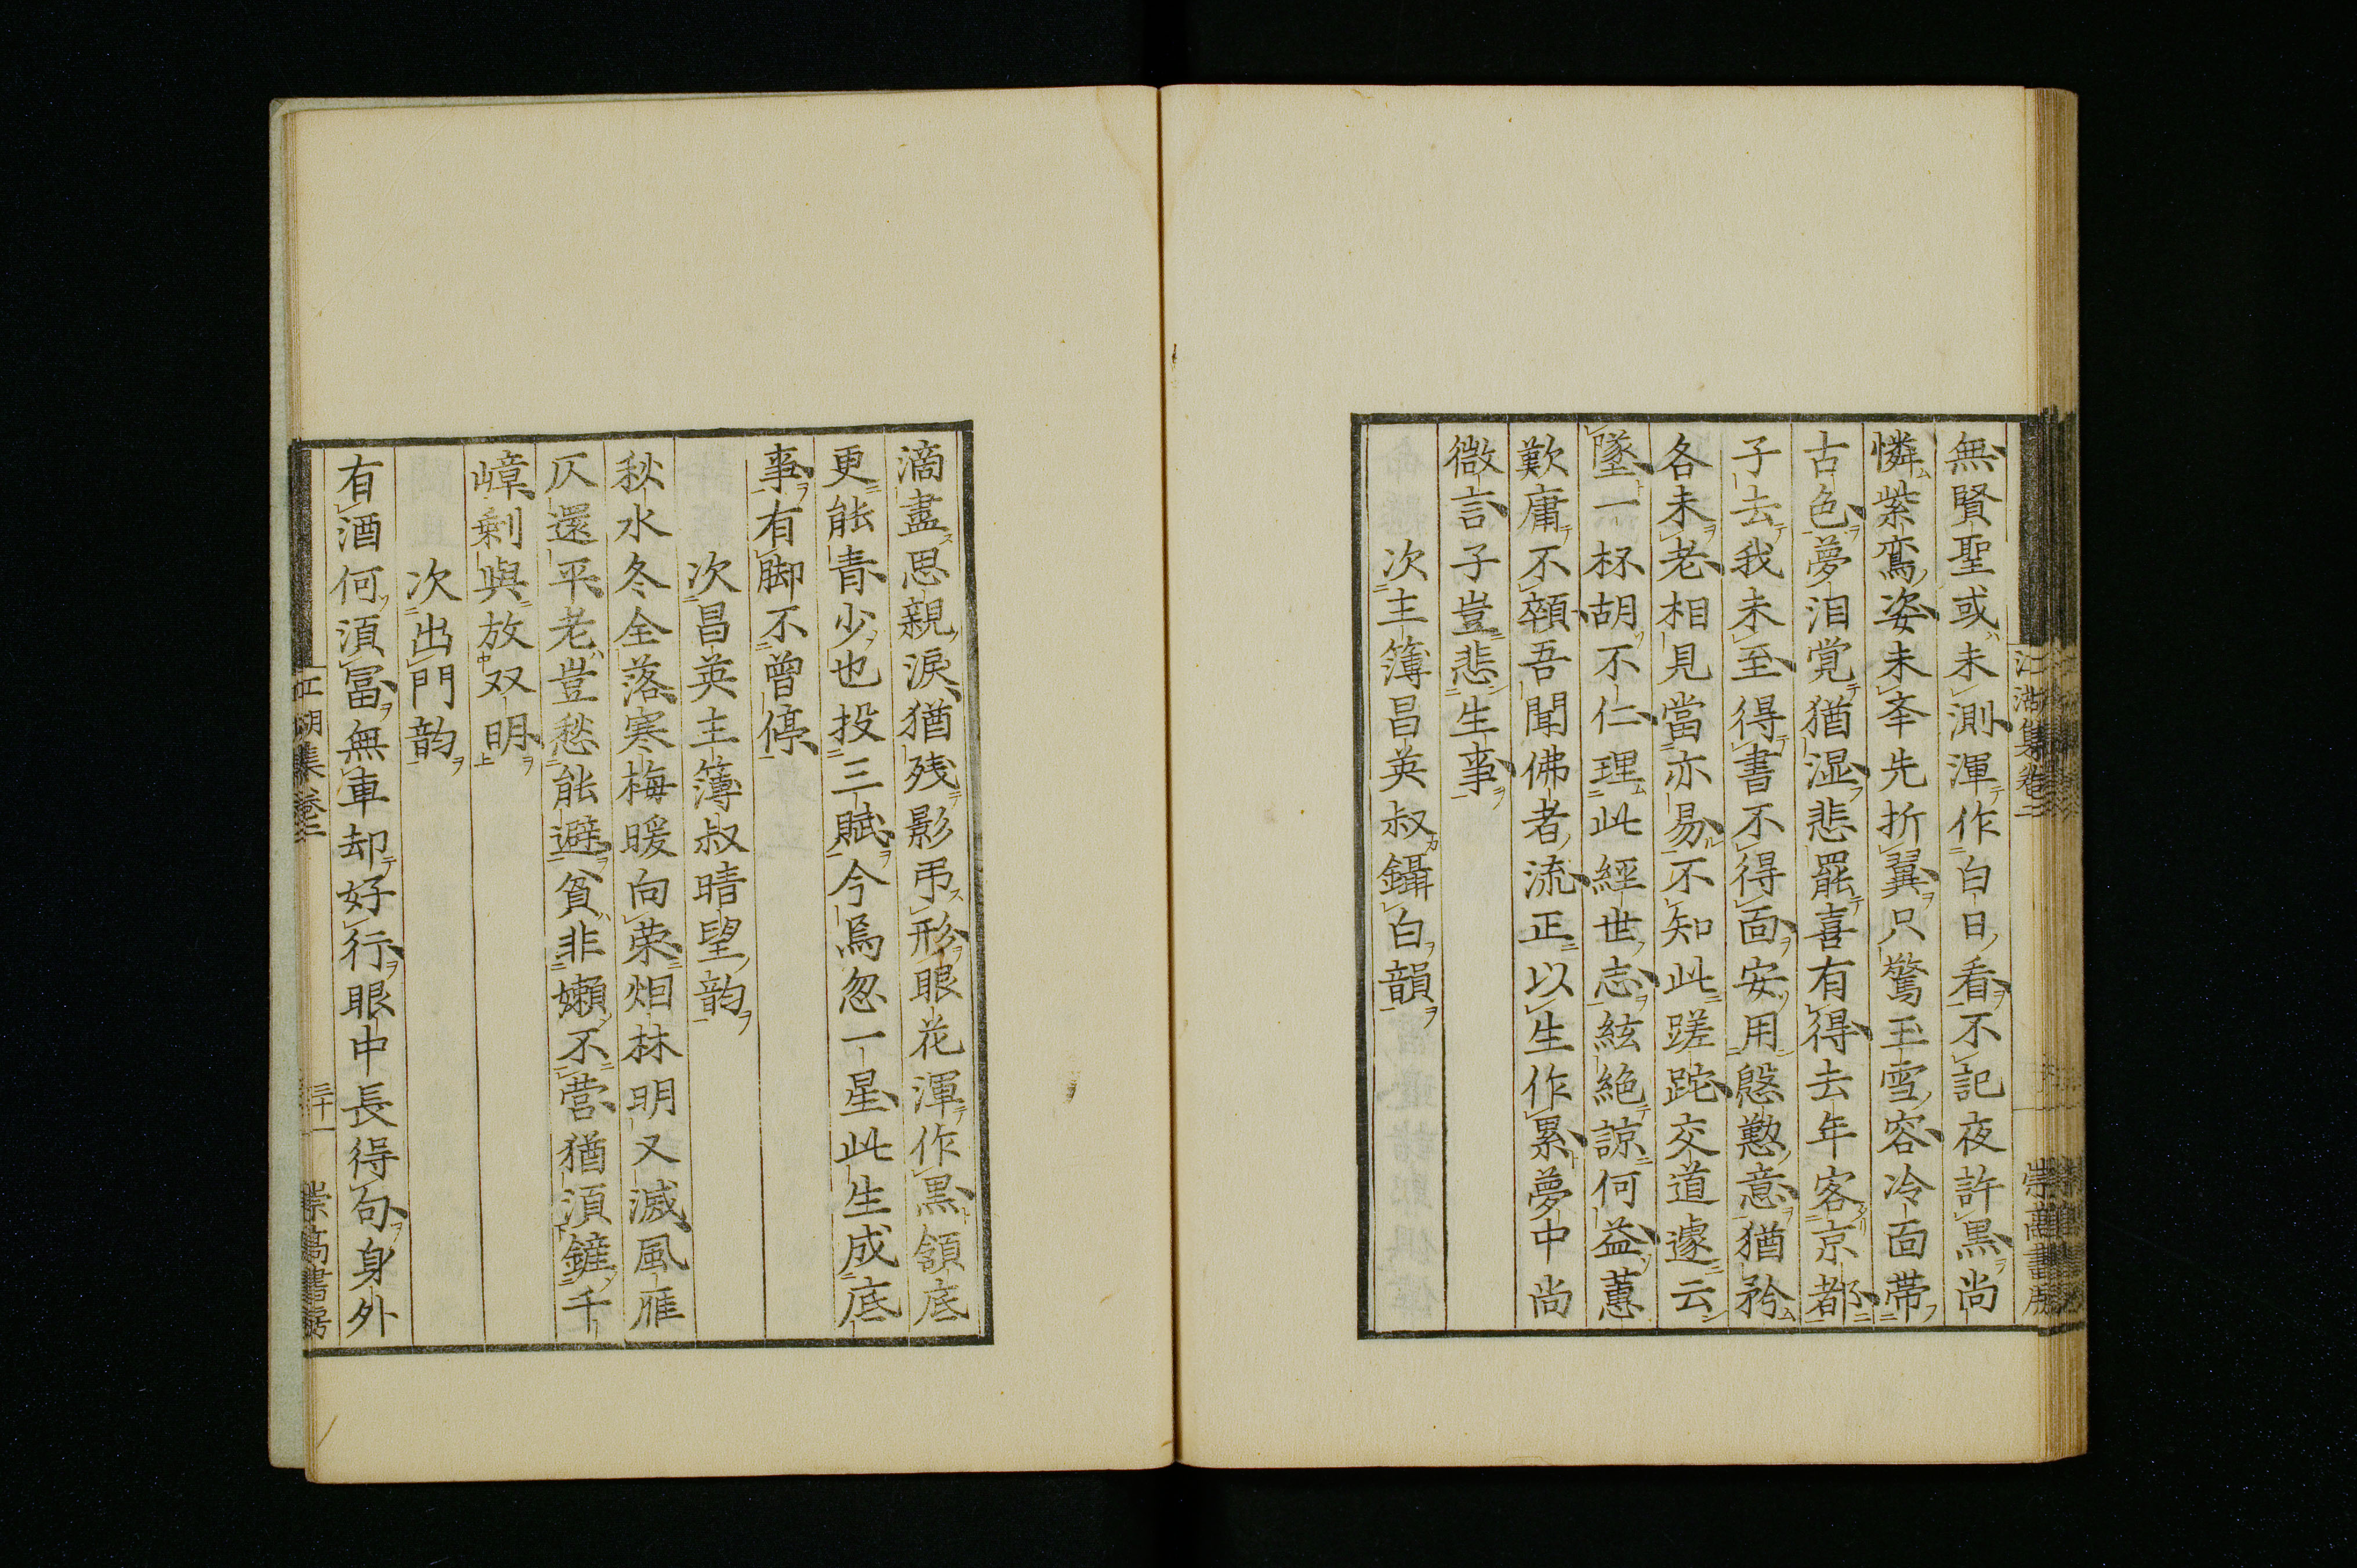 無賢聖或未測渾作白日看不記夜許黒尚
憐紫鸞姿未夲先折翼只驚玉雪容冷面帯
古色夢泪覚猶湿悲罷喜有得去年客京都
子去我未至得書不得面安用慇懃意猶矜
各未老相見當亦易不知此蹉跎交道遽云
墜一杯胡不仁理此經世志絃絶諒何益蕙
歎庸不顇吾聞佛者流正以生作累夢中尚
微言子豈悲生事
次主簿昌英叔鑷白韻
滴盡思親涙猶残影弔形眼花渾作黒頷底
更能青少也投三賦今烏忽一星此生成底
事有脚不曾停
次昌英主簿叔晴望韵
秋水冬全落寒梅暖向荣烟林明又滅風雁
仄還平老豈愁能避貧非嬾不営猶須鏟千
嶂剰與放双明
次出門韵
有酒何須冨無車却好行眼中長得句身外
江湖集巻二
崇高書房
江湖集巻二
三十一
崇高書房